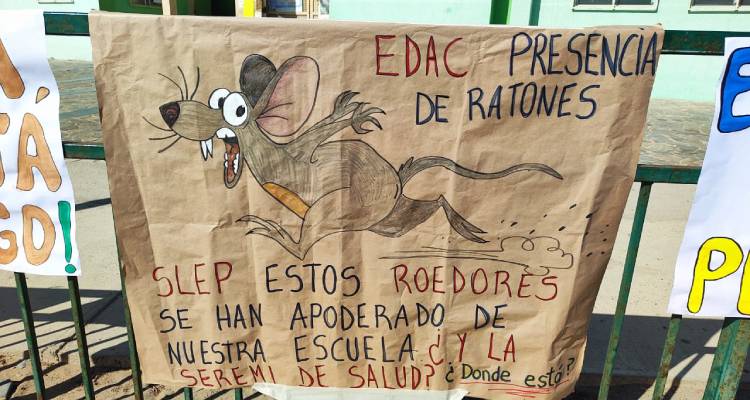 TÁ
GO!
EDAC PRESENCIA
DE RATONES
SLEP ESTOS ROEDORES
SE HAN APODERADO DE
NUESTRA ESCUELA ¿Y LA
SEREMI DE SALUD? ¿Donde está?